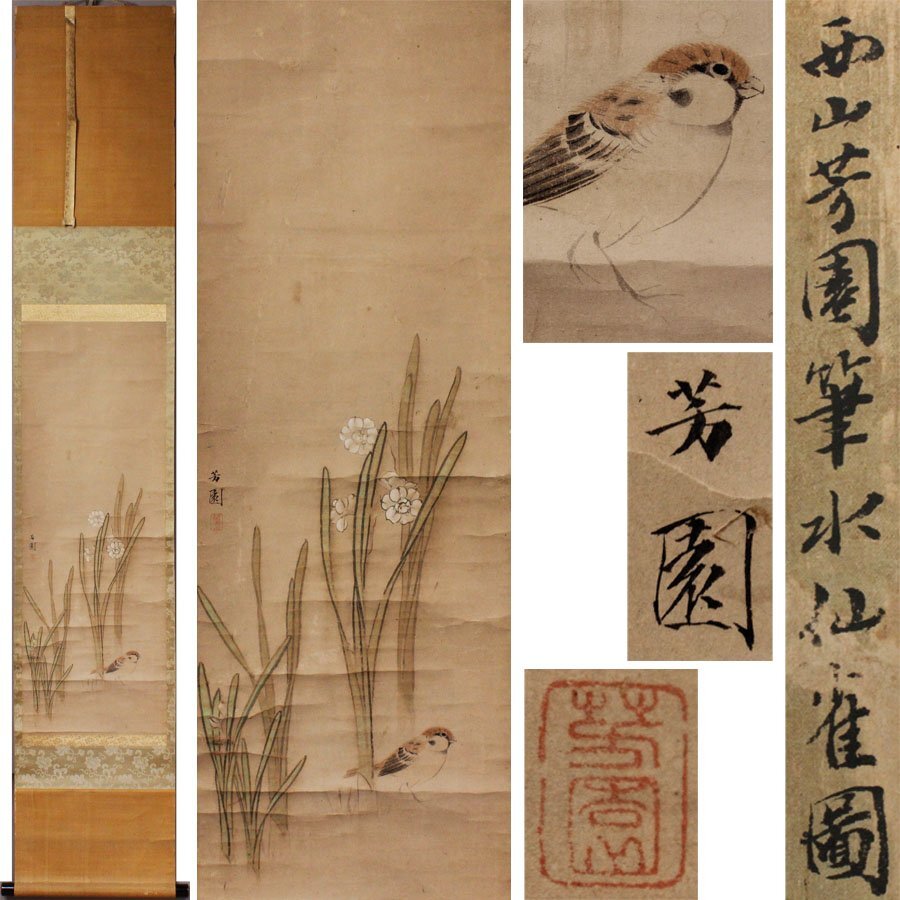 西山芳園筆水仙雀圖
芳園
芳園
芳園